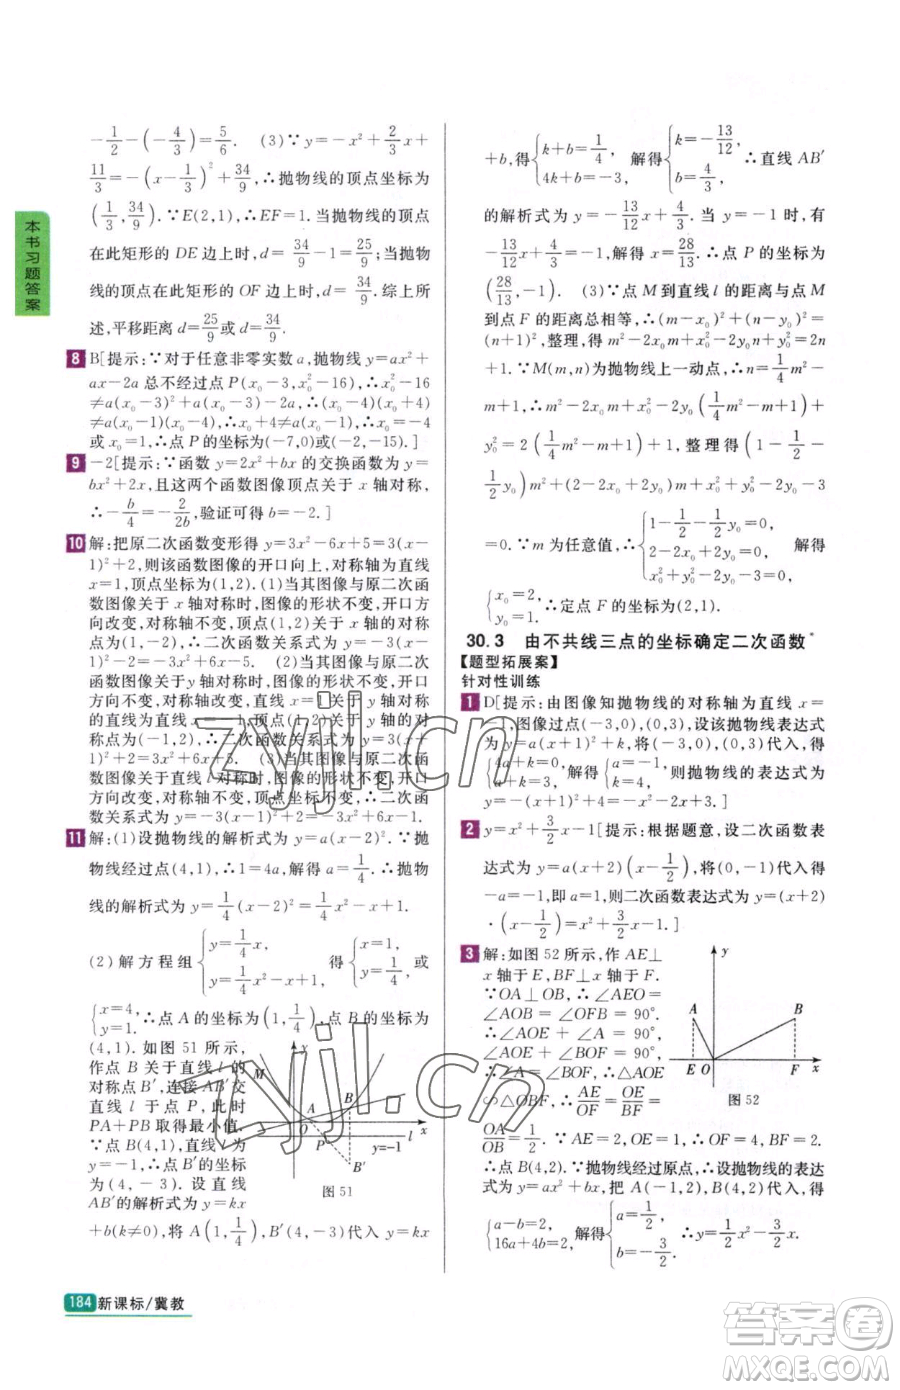 本书习题答案
-1/2-(-4/3)=5/6. (3)∵y=-x²+2/3x+
11/3=-(x-1/3)²+34/9,∴抛物线的顶点坐标为
(1/3,34/9).∵E(2,1),∴EF=1.当抛物线的顶点
在此矩形的DE边上时,d=34/9-1=25/9;当抛物
线的顶点在此矩形的OF边上时,d=34/9.综上所
述,平移距离d=25/9或d=34/9.
8 B[提示:∵对于任意非零实数a,抛物线y=ax²+
ax-2a总不经过点P(x₀-3,x₀²-16),∴x₀²-16
≠a(x₀-3)²+a(x₀-3)-2a,∴(x₀-4)(x₀+4)
≠a(x₀-1)(x₀-4),∴x₀+4≠a(x₀-1),∴x₀=-4
或x₀=1,∴点P的坐标为(-7,0)或(-2,-15).]
9 -2[提示:∵函数y=2x²+bx的交换函数为y=
bx²+2x,且这两个函数图像顶点关于x轴对称,
∴-b/4=-2/2b,验证可得b=-2.]
10 解:把原二次函数变形得y=3x²-6x+5=3(x-
1)²+2,则该函数图像的开口向上,对称轴为直线
x=1,顶点坐标为(1,2).(1)当其图像与原二次函
数图像关于x轴对称时,图像的形状不变,开口方
向改变,对称轴不变,顶点关于x轴对称,顶点为
(1,-2),∴二次函数关系式为y=-3(x-1)²-2=
-3x²+6x-5. (2)当其图像与原二次函数图像
关于y轴对称时,图像的形状不变,开口
方向不变,对称轴改变,直线x=1关于y轴对称
为直线x=-1,顶点(1,2)关于y轴的对
称点为(-1,2),∴二次函数关系式为y=3(x+
1)²+2=3x²+6x+5. (3)当其图像与原二次函
数图像关于直线y=2对称时,图像的形状不变,开口
方向改变,对称轴不变,顶点坐标不变,∴二次函
数关系式为y=-3(x-1)²+2=-3x²+6x-1.
11 解:(1)设抛物线的解析式为y=a(x-2)².∵抛
物线经过点(4,1),∴1=4a,解得a=1/4,∴抛物
线的解析式为y=1/4(x-2)²=1/4x²-x+1.
(2)解方程组{y=1/4x, y=1/4x²-x+1, 得{x=1, y=1/4, 或
{x=4, y=1. ∴点A的坐标为(1,1/4),点B的坐标为
(4,1).如图51所示,
作点B关于直线l的
对称点B′,连接AB′交
直线l于点P,此时
PA+PB取得最小值.
∵点B(4,1),直线l为
y=-1,∴点B′的坐标为
(4,-3).设直线
AB′的解析式为y=kx
M A B x O P y=-1 l x B′
图51
+b(k≠0),将A(1,1/4),B′(4,-3)代入y=kx
+b,得{k+b=1/4, 4k+b=-3, 解得{k=-13/12, b=4/3, ∴直线AB′
的解析式为y=-13/12x+4/3.当y=-1时,有
-13/12x+4/3=-1,解得x=28/13,∴点P的坐标为
(28/13,-1). (3)∵点M到直线l的距离与点M
到点F的距离总相等,∴(m-x₀)²+(n-y₀)²=
(n+1)²,整理,得m²-2x₀m+x₀²-2y₀n+y₀²=2n+
1.∵M(m,n)为抛物线上一动点,∴n=1/4m²-
m+1,∴m²-2x₀m+x₀²-2y₀(1/4m²-m+1)+
y₀²=2(1/4m²-m+1)+1,整理得(1-1/2-
1/2y₀)m²+(2-2x₀+2y₀)m+x₀²+y₀²-2y₀-3
=0.∵m为任意值,∴{1-1/2-1/2y₀=0, 2-2x₀+2y₀=0, x₀²+y₀²-2y₀-3=0, 解得
{x₀=2, y₀=1, ∴定点F的坐标为(2,1).
30.3 由不共线三点的坐标确定二次函数*
【题型拓展案】
针对性训练
1 D[提示:由图像知抛物线的对称轴为直线x=
-1,图像过点(-3,0),(0,3),设该抛物线表达式
为y=a(x+1)²+k,将(-3,0),(0,3)代入,得
{4a+k=0, a+k=3, 解得{a=-1, k=4, 则抛物线的表达式为
y=-(x+1)²+4=-x²-2x+3.]
2 y=x²+3/2x-1[提示:根据题意,设二次函数表
达式为y=a(x+2)(x-1/2),将(0,-1)代入得
-a=-1,即a=1,则二次函数表达式为y=(x+2)
·(x-1/2)=x²+3/2x-1.]
3 解:如图52所示,作AE⊥
x轴于E,BF⊥x轴于F.
∵OA⊥OB,∴∠AEO=
∠AOB=∠OFB=90°.
∴∠AOE+∠A=90°,
∠AOE+∠BOF=90°.
∴∠A=∠BOF,∴△AEO
∽△OBF,∴AE/OF=OE/BF=
OA/OB=1/2.∵AE=2,OE=1,∴OF=4,BF=2.
y A B E O F x
图52
∴点B(4,2).∵抛物线过原点,∴设抛物线的表达
式为y=ax²+bx,∴把点A(-1,2),B(4,2)代入得
{a-b=2, 16a+4b=2, 解得{a=1/2, b=-3/2, ∴y=1/2x²-3/2x.
184 新课标/冀教
zyjl.cn
zyjl.cn
答案圈
MXQE.COM